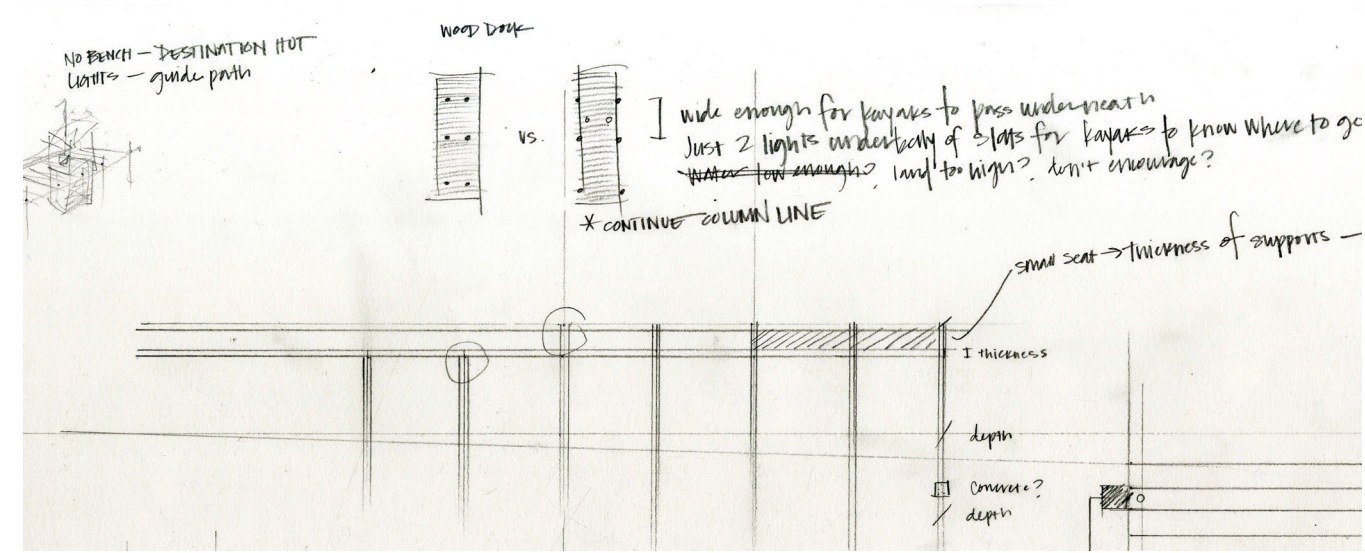 NO BENCH — DESTINATION HUT
LIGHTS — guide path
WOOD DOCK
vs.
wide enough for kayaks to pass underneath
Just 2 lights underbelly of slats for kayaks to know where to go
Water low enough?, land too high?, don't encourage?
* CONTINUE COLUMN LINE
small seat → thickness of supports —
I thickness
depth
concrete?
depth